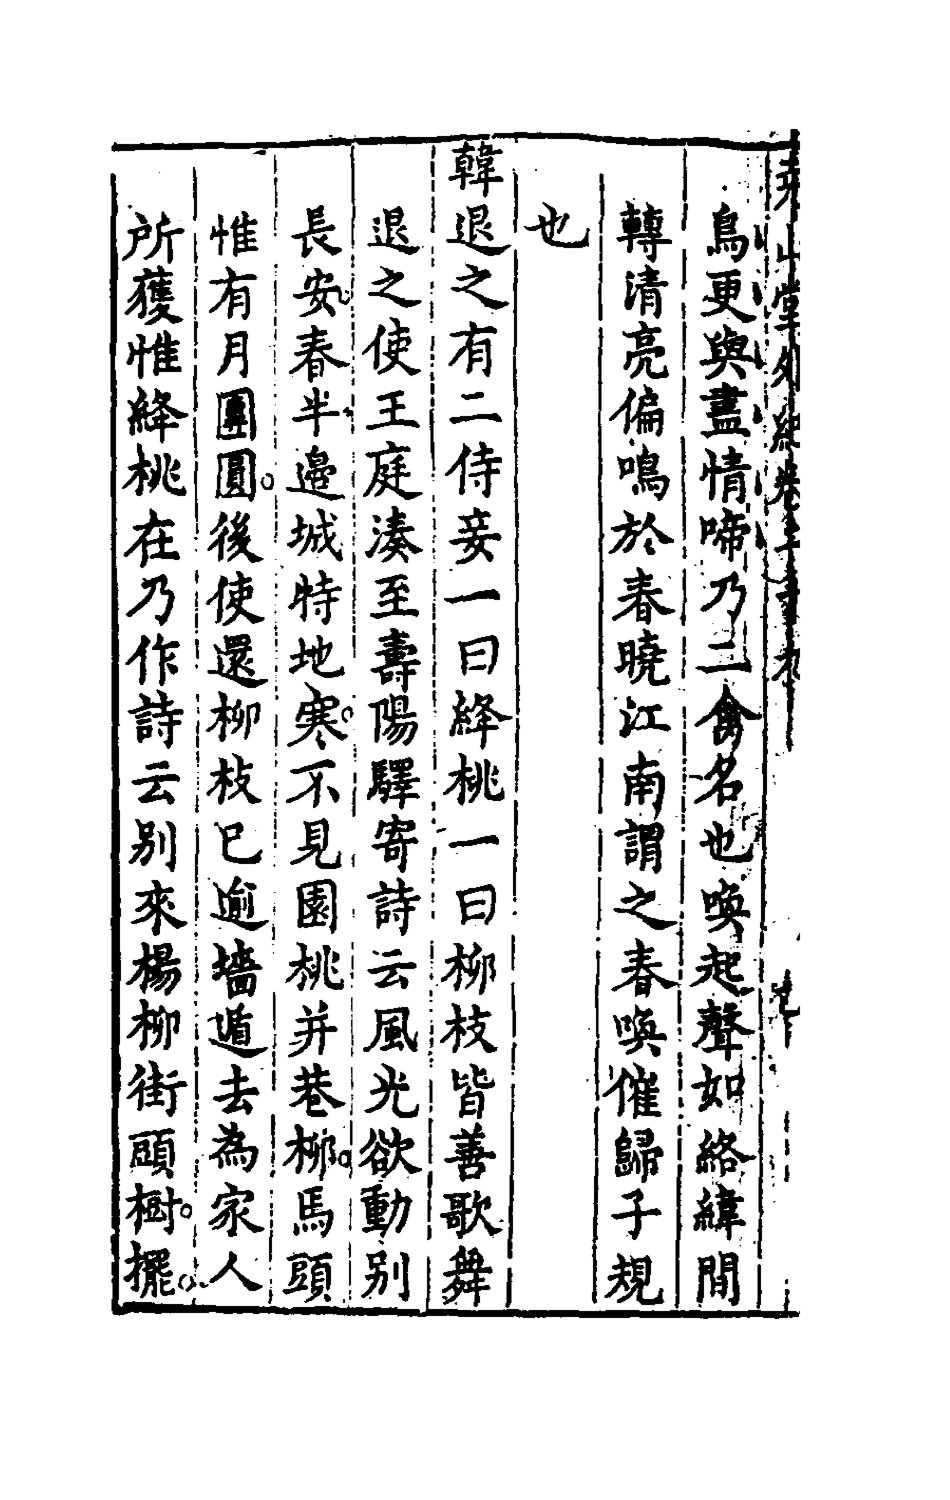 鳥更與盡情啼乃二禽名也喚起聲如絡緯間
轉清亮偏鳴於春曉江南謂之春喚催歸子規
也
韓退之有二侍妾一曰絳桃一曰柳枝皆善歌舞
退之使王庭湊至壽陽驛寄詩云風光欲動别
長安春半邊城特地寒不見園桃并巷柳馬頭
惟有月團圓後使還柳枝已逾墻遁去為家人
所獲惟絳桃在乃作詩云别來楊柳街頭樹擺